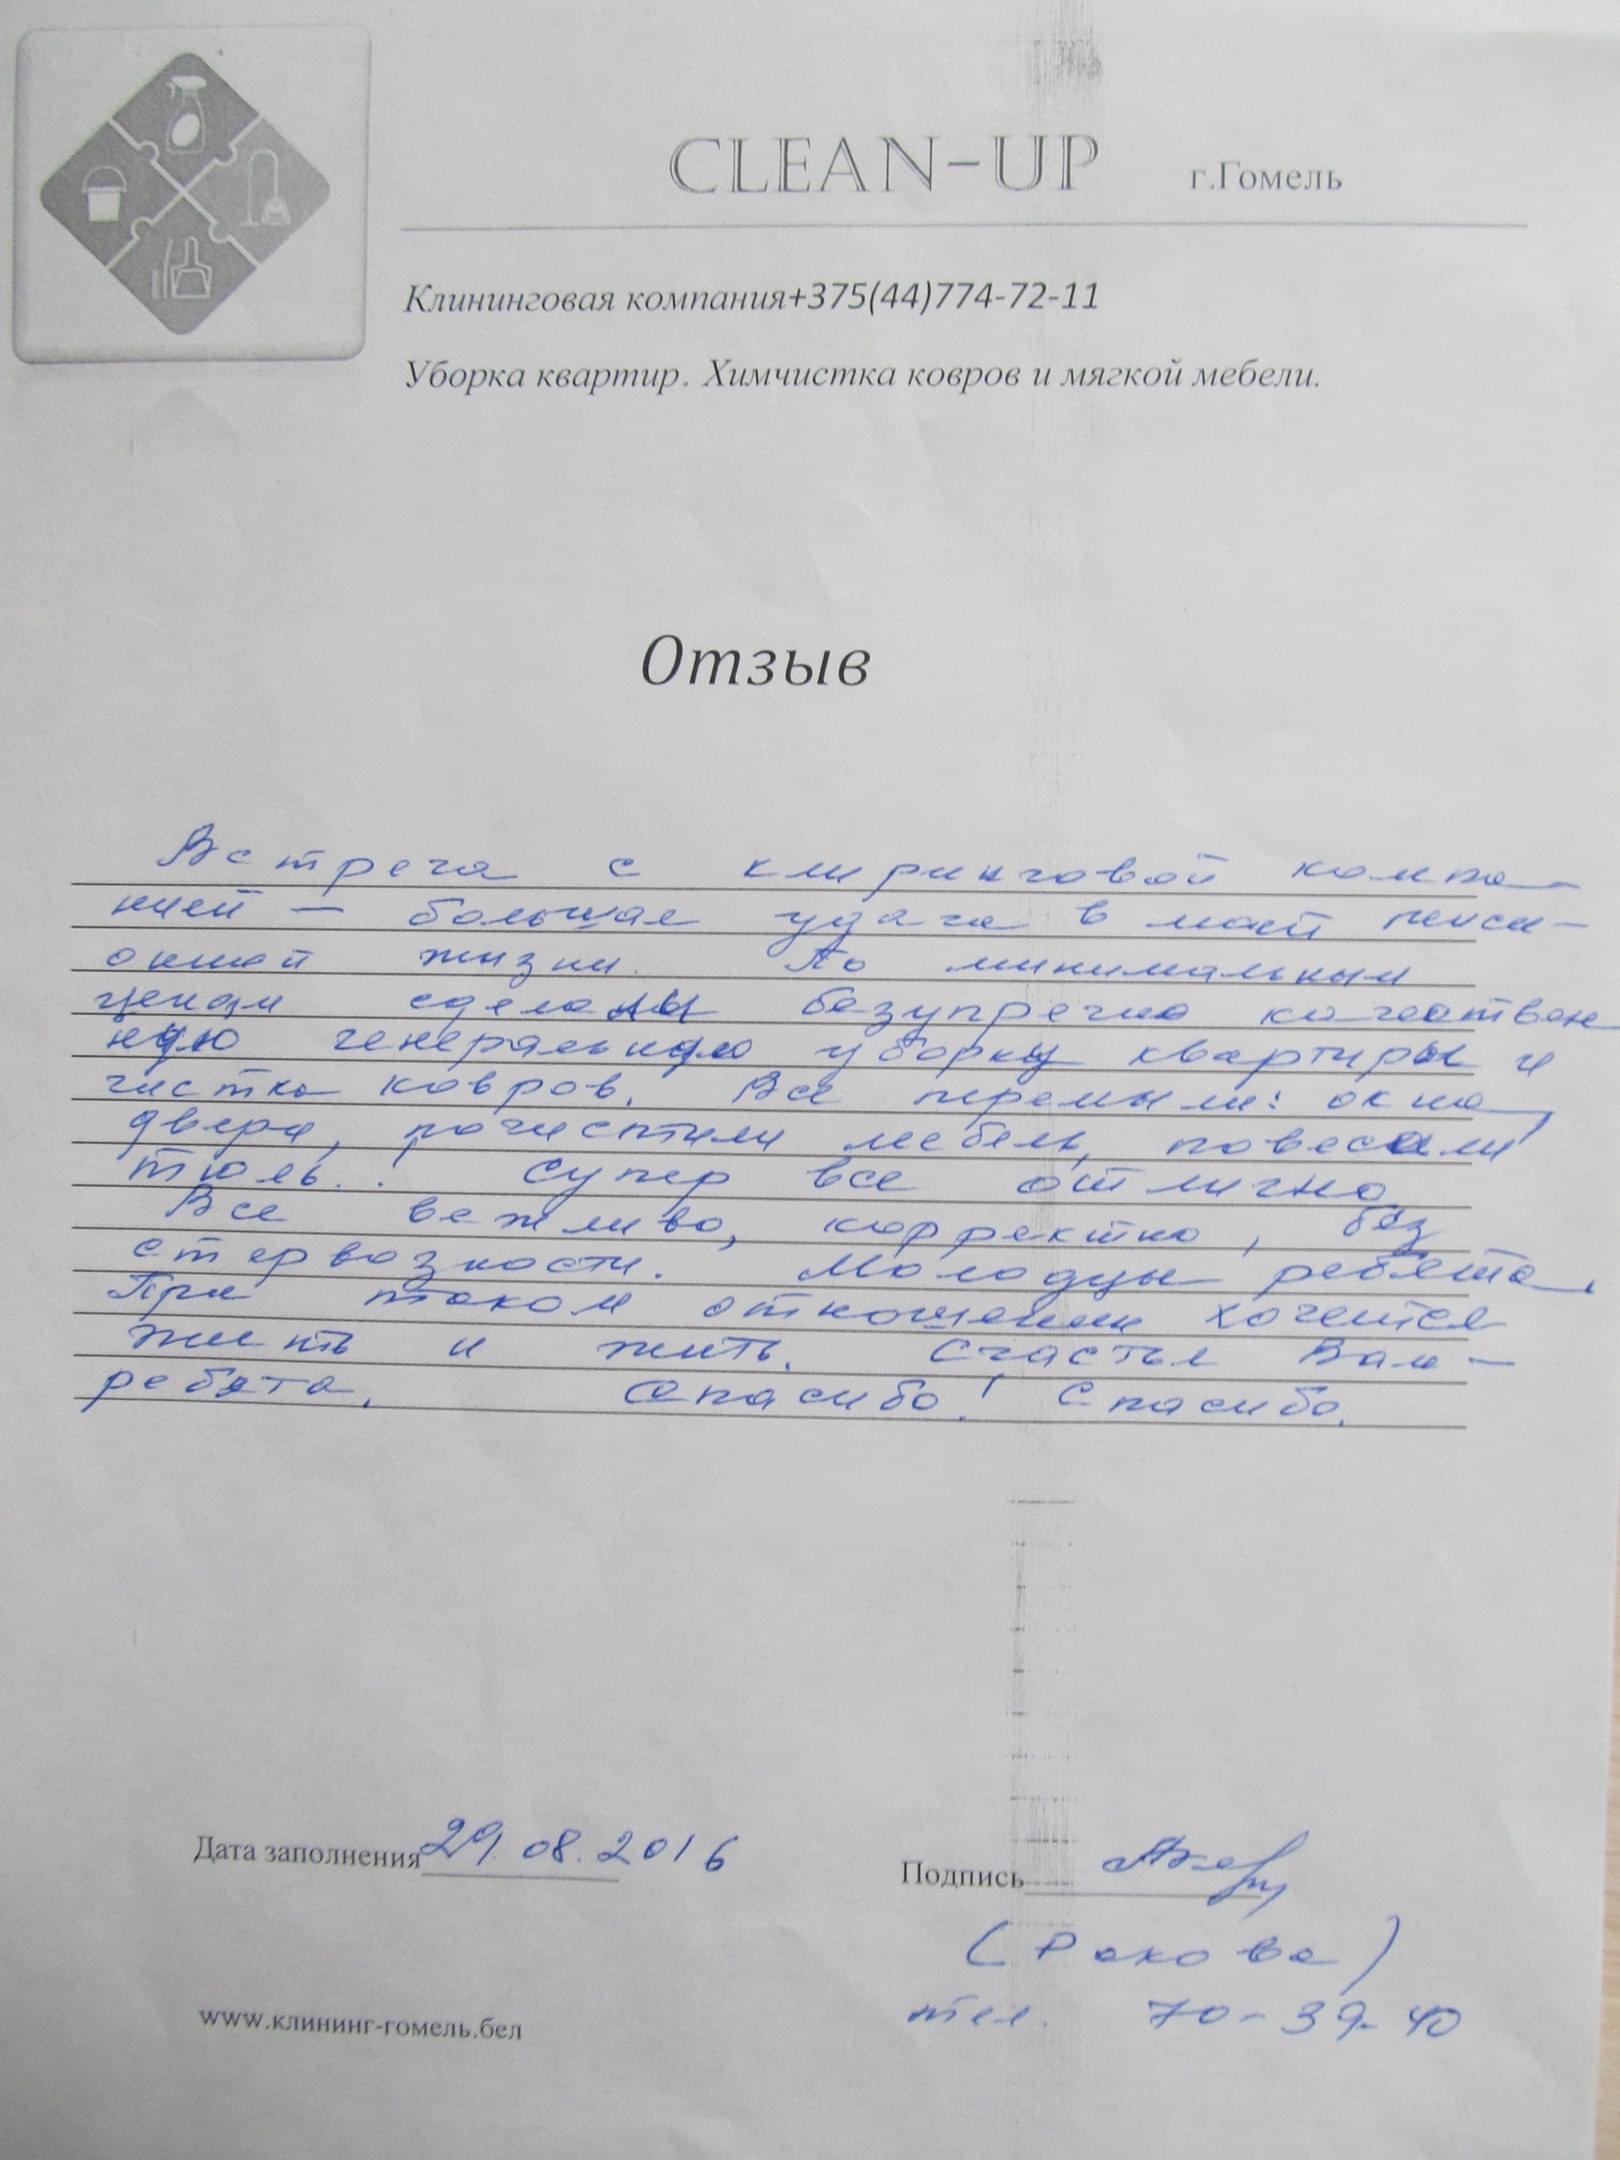 CLEAN-UP г.Гомель
Клининговая компания+375(44)774-72-11
Уборка квартир. Химчистка ковров и мягкой мебели.
Отзыв
Встреча с клиринговой компа-
нией - большая удача в моей пенси-
онной жизни. По минимальным
ценам сделали безупречно качествен
ную генеральную уборку квартиры и
чистка ковров. Все перемыли: окна,
двери, почистили мебель, повесили
тюль..! Супер все отлично
Все вежливо, корректно, без
стервозности. Молодцы ребята.
При таком отношении хочется
жить и жить. Счастья Вам -
ребята. Спасибо! Спасибо.
Дата заполнения 29.08.2016
Подпись
(Ракова)
www.клининг-гомель.бел
тел. 70-39-40